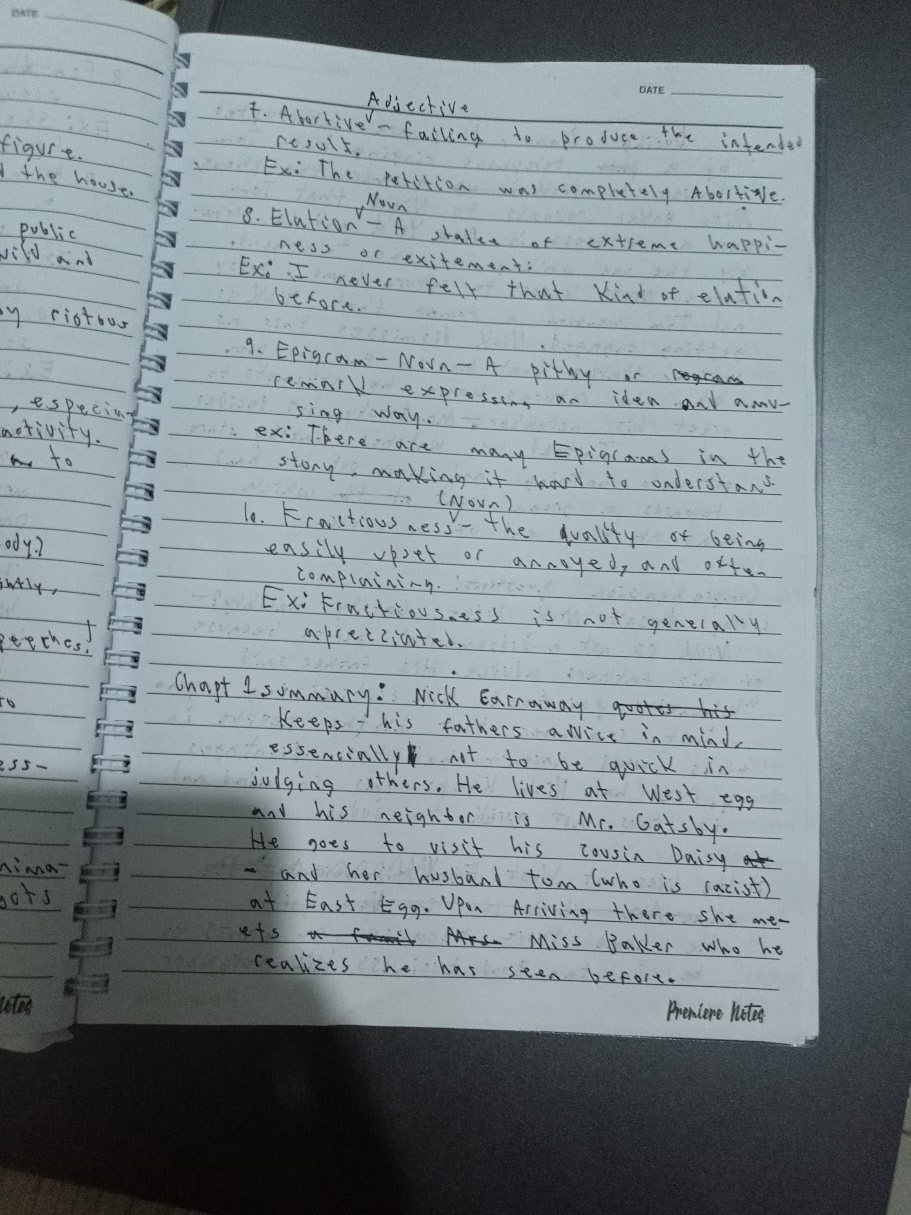 DATE
figure.
the house.
public
wild and
riotous
, especial
activity.
to
ody?
intly,
peeches!
ess-
nima-
gots
Notes
DATE
Adjective
7. Abortive - failing to produce the intended
result.
Ex: The petition was completely Abortive.
Noun
8. Elation - A state of extreme happi-
ness or exitement.
Ex: I never felt that kind of elation
before.
9. Epigram - Noun - A pithy or
remark expressing an idea and amu-
sing way.
ex: There are many Epigrams in the
story, making it hard to understand.
(Noun)
10. Fractiousness - the quality of being
easily upset or annoyed, and often
complaining.
Ex: Fractiousness is not generally
apreciated.
Chapt 1 summary: Nick Carraway quotes his
keeps his fathers advice in mind,
essencially not to be quick in
judging others. He lives at West egg
and his neighbor is Mr. Gatsby.
He goes to visit his cousin Daisy at
- and her husband tom (who is racist)
at East Egg. Upon Arriving there she me-
ets a famil Mrs. Miss Baker who he
realizes he has seen before.
Premiere Notes